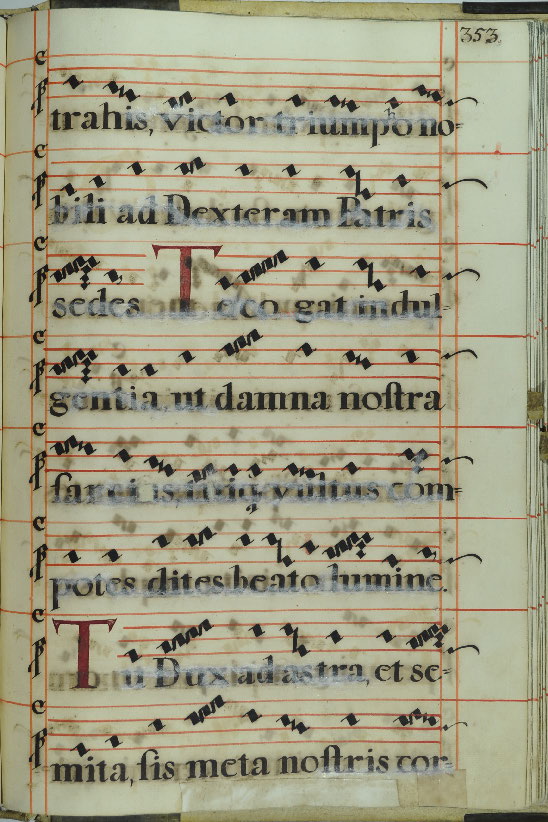 353
trahis, victor triumpho no=
bili ad Dexteram Patris
sedes Te co gat indul-
gentia, ut damna nostra
sarci as, tuiq; vultus com=
potes dites beato lumine.
Tu Dux ad astra, et se=
mita, sis meta nostris cor-